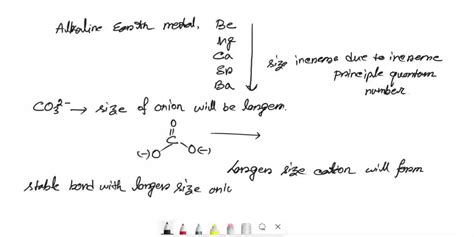 Alkaline Earth metal, Be
Mg
Ca
Sr
Ba
size increase due to increase
principle quantum
number.
CO₃²⁻ → size of anion will be larger.
O
C
(-)O O(-)
larger size cation will form
stable bond with larger size anic